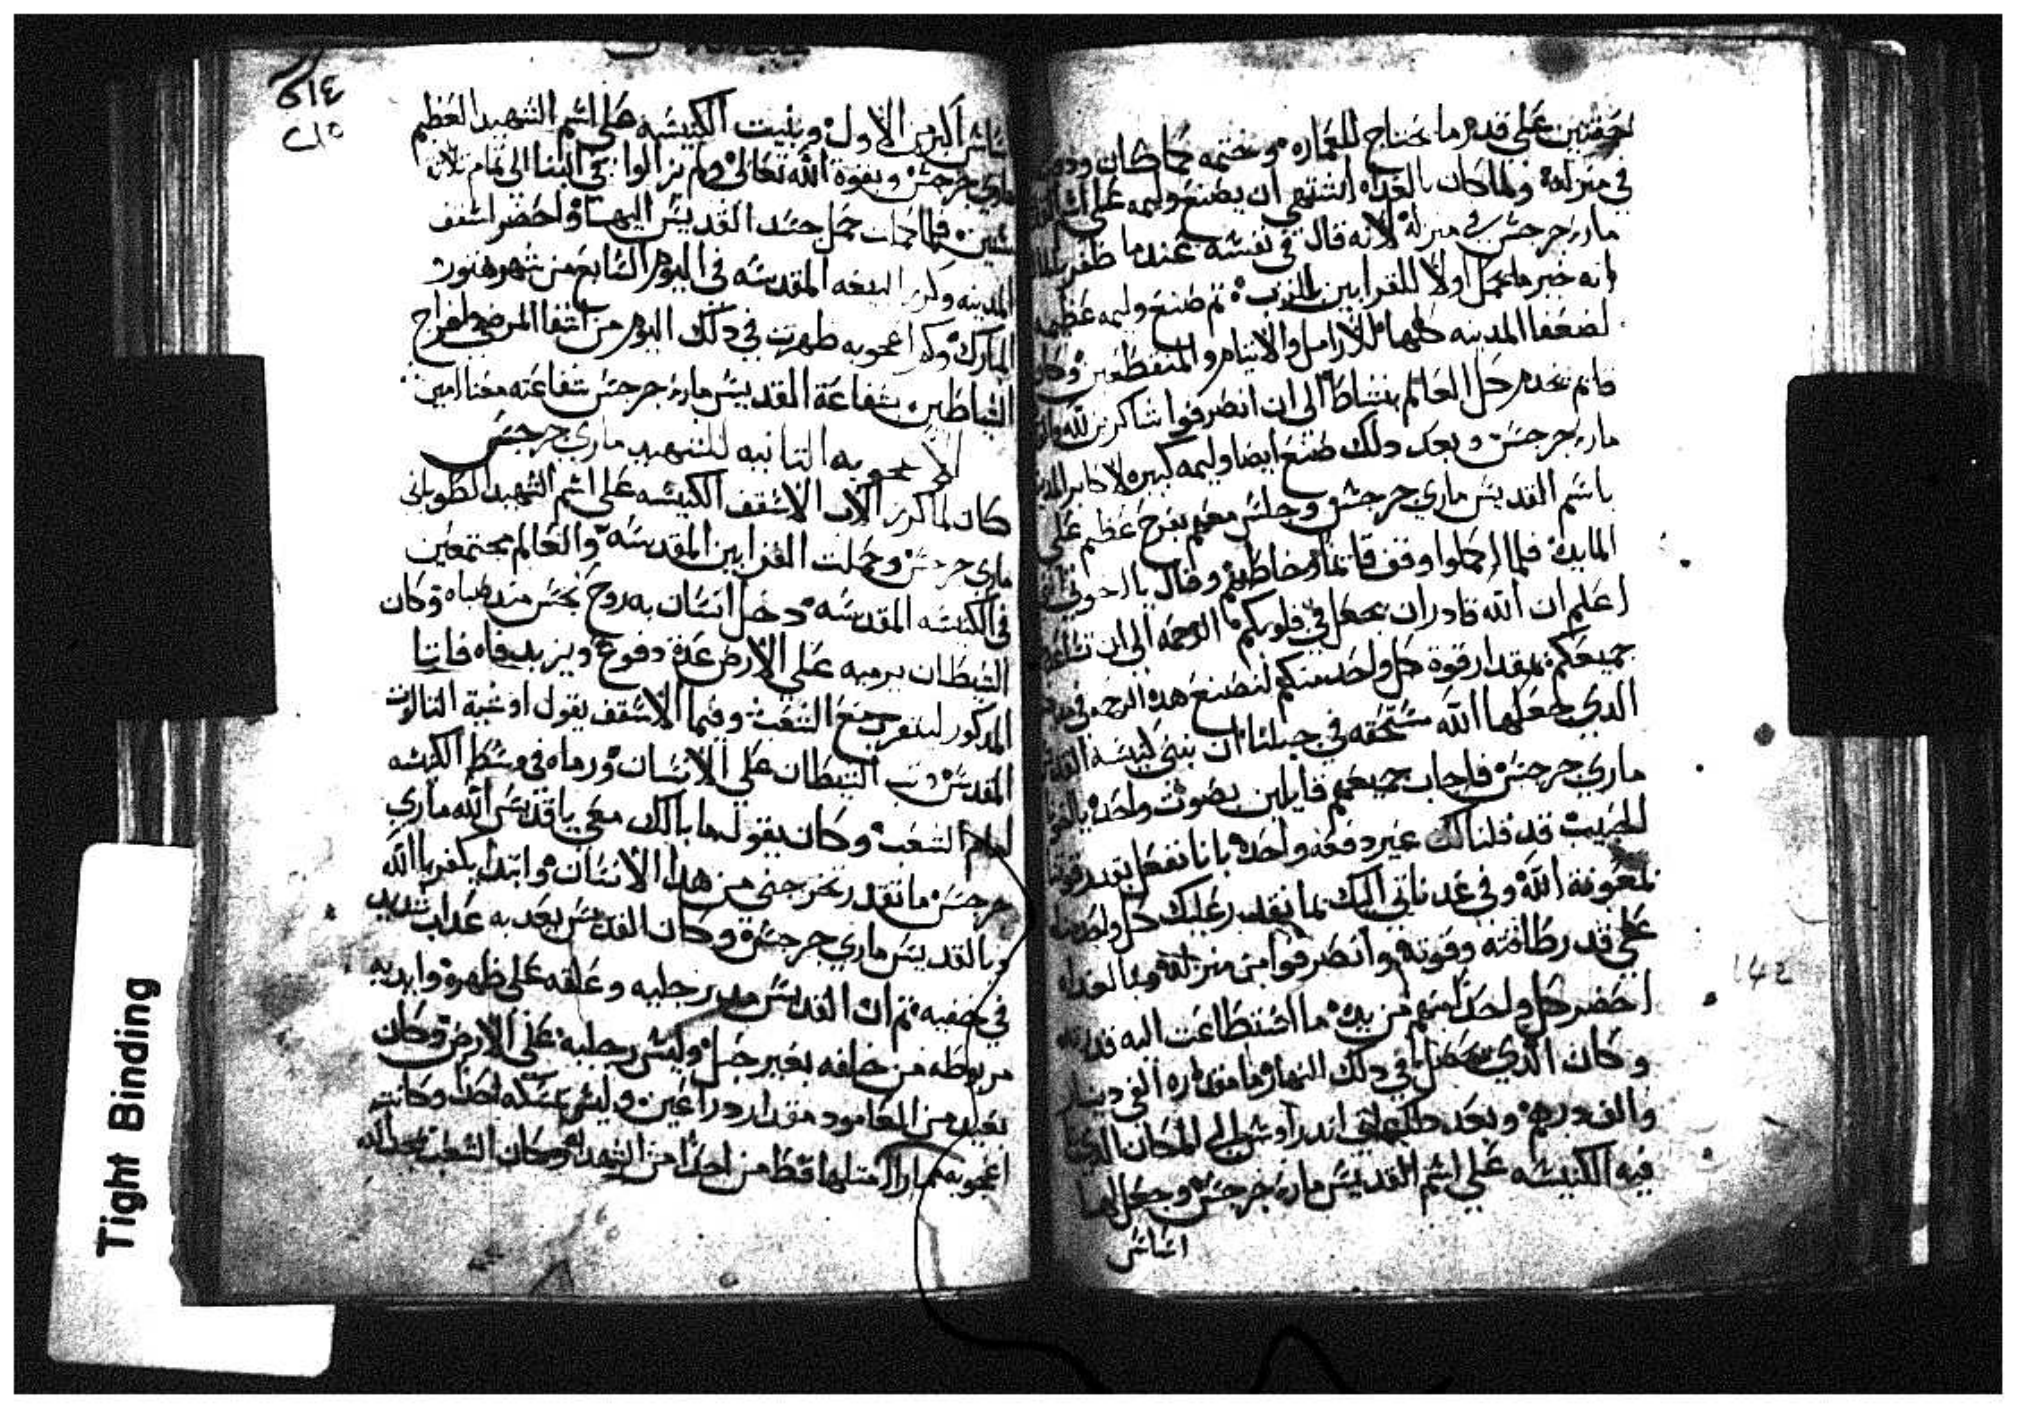 على قدر ما يحتاج للعماره وختمه كما كان
في منزله ولما كان بالغداه اشتهى ان يصنع وليمه على اسم
ماري جرجس في منزله لانه قال في نفسه عندما ظفر
انه خير ما يعمل اولا للقرابين ثم صنع وليمه عظيمه
لضعفا المدينه كلها للارامل والايتام والمنقطعين وكان
العالم بنشاط الى ان انصرفوا شاكرين لله
ماري جرجس وبعد دلك صنع ايضا وليمه كبيره لاكابر
باسم القديس ماري جرجس وجلس معهم بفرح عظيم على
المايده فلما وقف قايما وخاطبهم وقال يا اخوتي
اعلم ان الله قادر ان يجعل في قلوبكم الرحمه الى ان
جميعكم بمقدار قوة كل واحد منكم لنصنع هده الرحمه في
الدي جعلها الله مستحقه في جيلنا ان نبني كنيسة
ماري جرجس فاجاب جميعهم قايلين بصوت واحد
الحبيب قد قلنا لك غير دفعه واحده باننا نفعل
بمعونة الله وفي غد ناتي اليك بما نقدر عليك كل واحد
على قدر طاقته وقوته وانصرفوا من منزله وبالغداه
احضر كل واحد منهم من يده ما استطاعت اليه
وكان الدي في دلك النهار ما مقداره الفي دينار
والف درهم وبعد اندراوس الى المكان الدي
فيه الكنيسه على اسم القديس ماري جرجس وجعل لها
اساس
٥١٤
٢١٥
اساس اكبر من الاول وبنيت الكنيسه على اسم الشهيد العظيم
ماري جرجس وبقوة الله تعالى ولم يزالوا في البنا الى تمام ثلاث
سنين فلما حمل جسد القديس اليها واحضر اسقف
المدينه وكرز البيعه المقدسه في اليوم السابع من شهر هتور
المبارك وكم اعجوبه ظهرت في دلك اليوم من اشفا المرضى واخراج
الشياطين بشفاعة القديس ماري جرجس شفاعته معنا امين
الاعجوبه التانيه للشهيد ماري جرجس
كان لما كرز الاب الاسقف الكنيسه على اسم الشهيد الطوباني
ماري جرجس وحملت القرابين المقدسه والعالم مجتمعين
في الكنيسه المقدسه دخل انسان به روح نجس مند صباه وكان
الشيطان يرميه على الارض عدة دفوع ويزبد فاه فاتا
المدكور ليتفرج مع الشعب وفيما الاسقف يقول اوشية التالوت
المقدس وتب الشيطان على الانسان ورماه في وسط الكنيسه
امام الشعب وكان يقول ما بالك معي يا قديس الله ماري
جرجس ما تقدر تخرجني من هدا الانسان وابتدا يكفر بالله
وبالقديس ماري جرجس وكان القديس يعدبه عداب شديد
في ثم ان القديس مد رجليه وعلقه على ظهره وايديه
مربوطه من خلفه بغير حبل وليس رجليه على الارض وكان
بعيد من العامود مقدار دراعين وليس يمسكه احد وكانت
اعجوبه مثلها قط من احدا من الشهدا وكان الشعب
142
Tight Binding